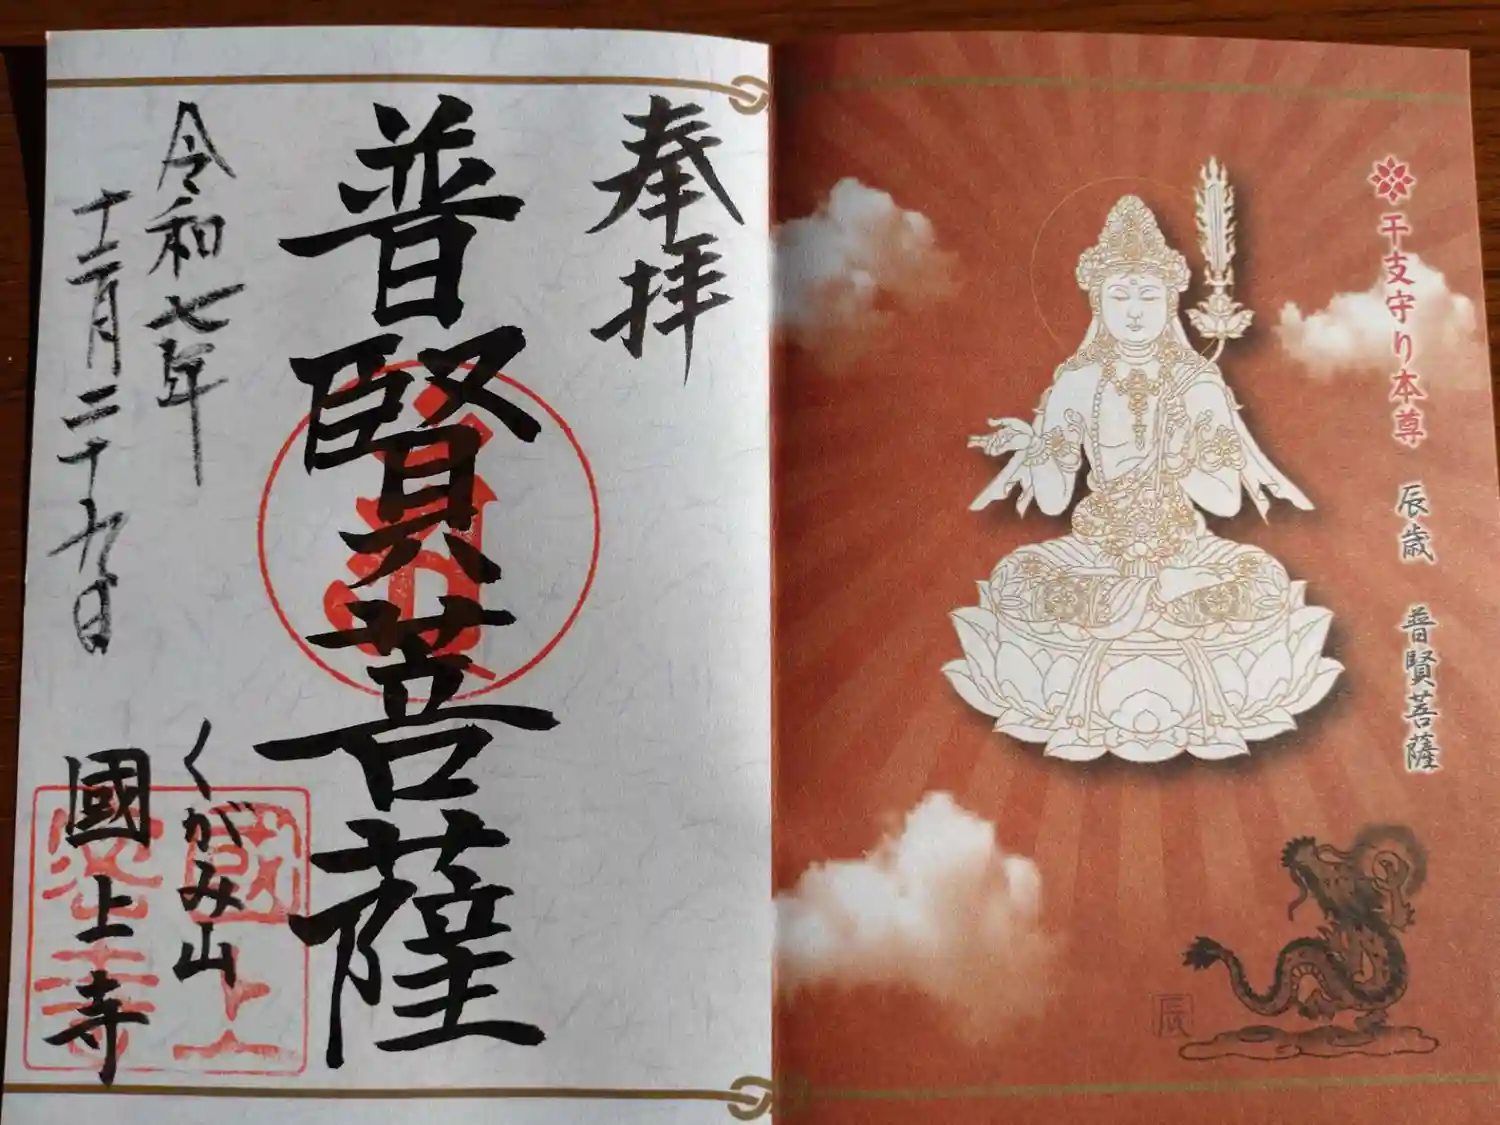 干支守り本尊　辰歳　普賢菩薩
辰
奉拝
普賢菩薩
令和七年
十二月二十九日
くがみ山
國上寺